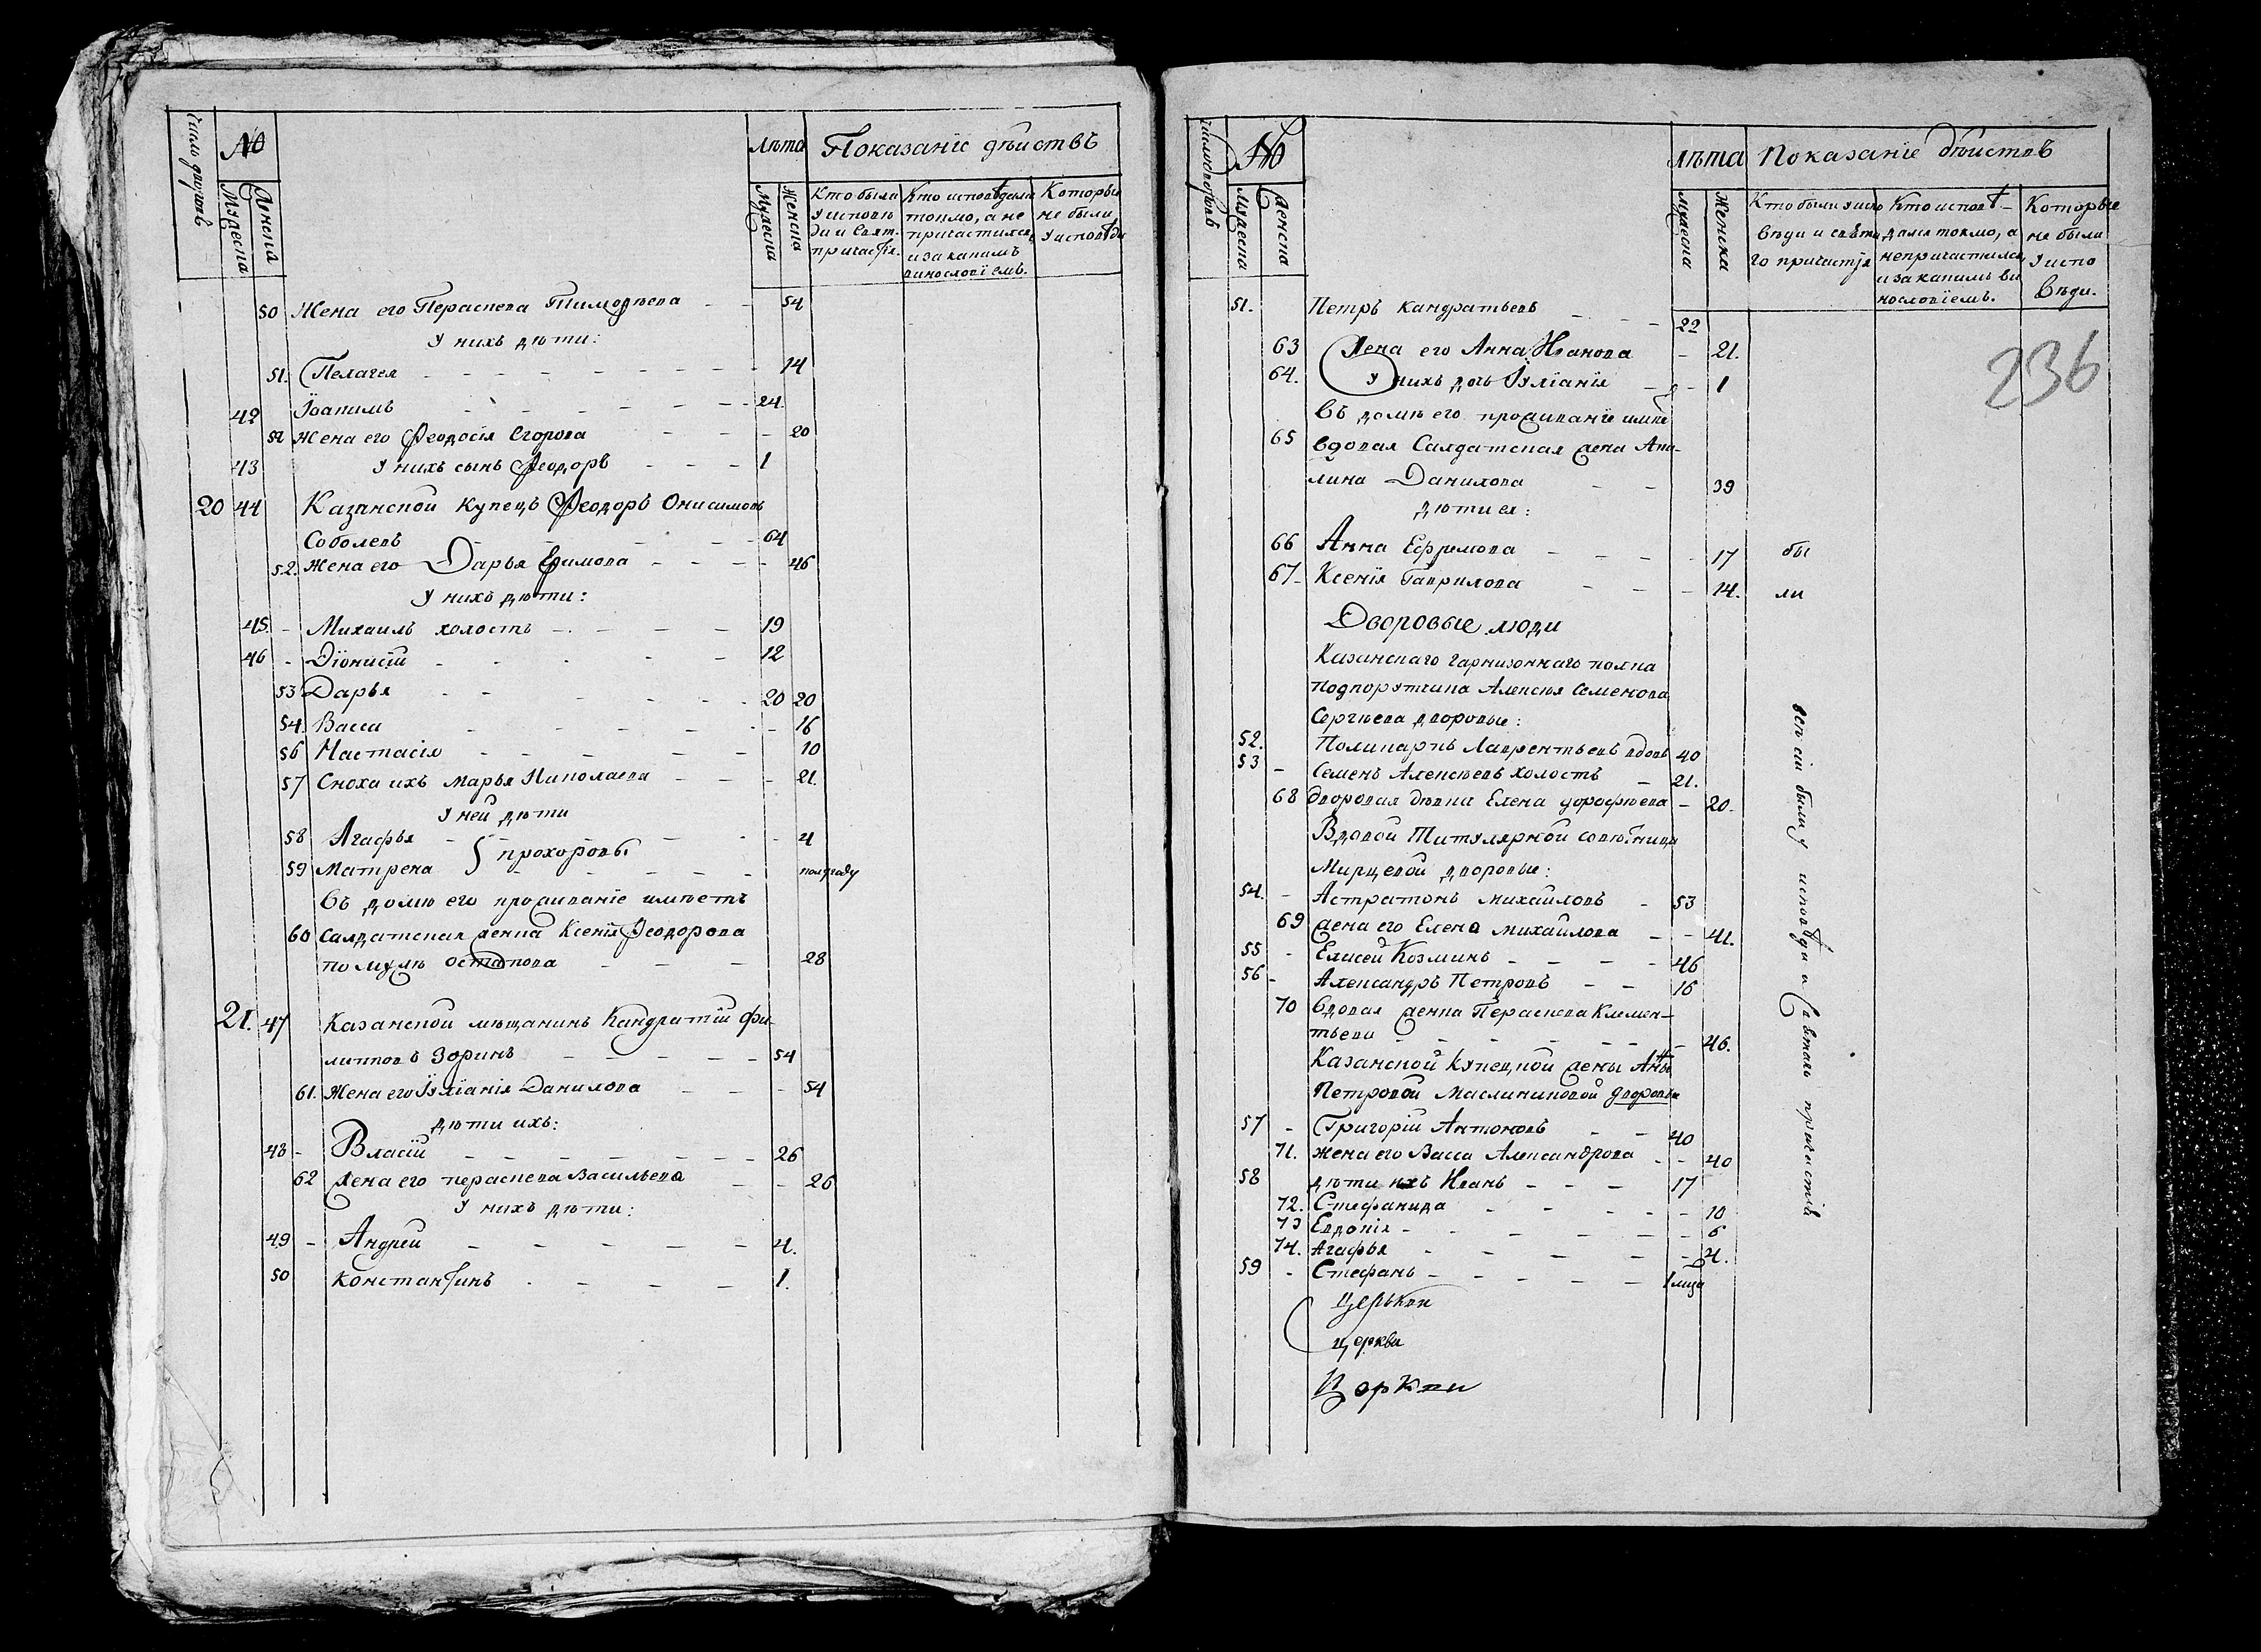 Число дворовъ
№
Мужеска
Женска
Лѣта
Показанїе дѣиствъ
Мужеска
Женска
Кто были
у исповѣ
ди и свят.
причастїя.
Кто исповѣдали
токмо, а не
причастился,
и за какимъ
винословїемъ.
Которые
не были
у исповѣди
50 Жена его Пераскева Тимоѳѣева - - 54
У нихъ дѣти:
51. Пелагея - - - 14
42 Їоакимъ - - - 24.
52 Жена его Феодосїя Егорова - - - 20
43 У нихъ сынъ Феодоръ - - - 1
20 44 Казанской купецъ Феодоръ Онисимовъ
Соболевъ - - - 64
52. Жена его Дарья Ефимова - - - 46
У нихъ дѣти:
45. - Михаилъ холостъ - - - 19
46 - Дїонисїй - - - 12
53 Дарья - - - 20 20
54. Васса - - - 16
56 Настасїя - - - 10
57 Сноха ихъ Марья Николаева - - - 21.
У ней дѣти
58 Агафья - - - 4
прохоровы
59 Матрена - - - полгоду
Въ домѣ его проживанїе имѣетъ
60 Салдатская женка Ксенїя Феодорова
по мужѣ Остапова - - - 28
21. 47 Казанской мѣщанинъ Кандратїй Фи-
липповъ Зоринъ - - - 54
61. Жена его Їулїанїя Данилова - - - 54
дѣти ихъ:
48 - Власїй - - - 26
62 Жена его пераскева Васильева - - 26
У нихъ дѣти:
49 - Андрей - - - 4.
50 Константинъ - - - 1.
Число дворовъ
№
Мужеска
Женска
Лѣта
Показанїе дѣиствъ
Мужеска
Женска
Кто были у испо
вѣди и святи
го причастїя
Кто исповѣ-
дался токмо, а
непричастился,
и за какимъ ви
нословїемъ.
Которые
не были
у испо
вѣди.
236
51. Петръ Кандратьевъ - - - 22
63 Жена его Анна Иванова - 21.
64. У нихъ дочь Їулїанїя - - 1
Въ домѣ его проживанїе имѣе
65 вдовая Салдатская жена Аку-
лина Данилова - - 39
дѣти ея:
66 Анна Ефремова - - - 17 бы
67 - Ксенїя Гаврилова - - - 14. ли
Дворовые люди
Казанскаго гарнизоннаго полка
подпорутчика Алексѣя Семенова
Сергѣева дворовые:
52. Поликарпъ Лаврентьевъ вдовъ 40
53 - Семенъ Алексѣевъ холостъ - 21.
68 дворовая дѣвка Елена дорофѣева - 20.
Вдовой Титулярной совѣтницы
Мирцевой дворовые:
54. - Астратонъ Михаиловъ - 53
69 жена его Елена Михаилова - - 41.
55 - Елисей Козминъ - - - 46
56 - Александръ Петровъ - - 16
70 Вдовая женка Пераскева Климен-
тьева - - - 46.
Казанской купецкой жены Анны
Петровой Маслениковой дворовые
57 - Григорїй Антоновъ - - 40
71. Жена его Васса Александрова - - 40
58 дѣти ихъ Иванъ - - - 17
72. Стефанида - - - 10
73 Евдокїя - - - 6
74. Агафья - - - 4.
59 - Стефанъ - - - 1
Церькви
церкви
Церкви
всѣ сїи были у исповѣди и Святаго причастїя